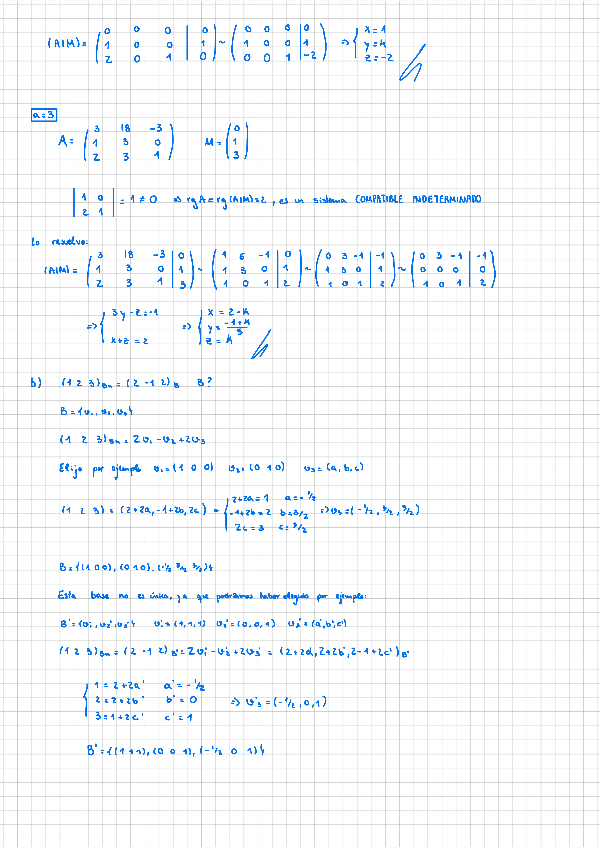 (A|M) = ( 0 0 0 | 0 ; 1 0 0 | 1 ; 2 0 1 | 0 ) ~ ( 0 0 0 | 0 ; 1 0 0 | 1 ; 0 0 1 | -2 ) => { x = 1 ; y = k ; z = -2
a = 3
A = ( 3 18 -3 ; 1 3 0 ; 2 3 1 ) M = ( 0 ; 1 ; 3 )
| 1 0 ; 2 1 | = 1 ≠ 0 => rg A = rg (A|M) = 2, es un sistema COMPATIBLE INDETERMINADO
Lo resuelvo:
(A|M) = ( 3 18 -3 | 0 ; 1 3 0 | 1 ; 2 3 1 | 3 ) ~ ( 1 6 -1 | 0 ; 1 3 0 | 1 ; 1 0 1 | 2 ) ~ ( 0 3 -1 | -1 ; 1 3 0 | 1 ; 1 0 1 | 2 ) ~ ( 0 3 -1 | -1 ; 0 0 0 | 0 ; 1 0 1 | 2 )
=> { 3y - z = -1 ; x + z = 2 => { x = 2 - k ; y = (-1+k)/3 ; z = k
b) (1 2 3)Bn = (2 -1 2)B B?
B = {v1, v2, v3}
(1 2 3)Bn = 2v1 - v2 + 2v3
Elijo por ejemplo v1 = (1 0 0) v2 = (0 1 0) v3 = (a, b, c)
(1 2 3) = (2+2a, -1+2b, 2c) = { 2+2a = 1 a = -1/2 ; -1+2b = 2 b = 3/2 ; 2c = 3 c = 3/2 => v3 = (-1/2, 3/2, 3/2)
B = {(1 0 0), (0 1 0), (-1/2 3/2 3/2)}
Esta base no es única, ya que podríamos haber elegido por ejemplo:
B' = {v1', v2', v3'} v1' = (1, 1, 1) v2' = (0, 0, 1) v3' = (a', b', c')
(1 2 3)Bn = (2 -1 2)B' = 2v1' - v2' + 2v3' = (2+2a', 2+2b', 2-1+2c')B'
{ 1 = 2+2a' a' = -1/2 ; 2 = 2+2b' b' = 0 ; 3 = 1+2c' c' = 1 => v3' = (-1/2, 0, 1)
B' = {(1 1 1), (0 0 1), (-1/2 0 1)}